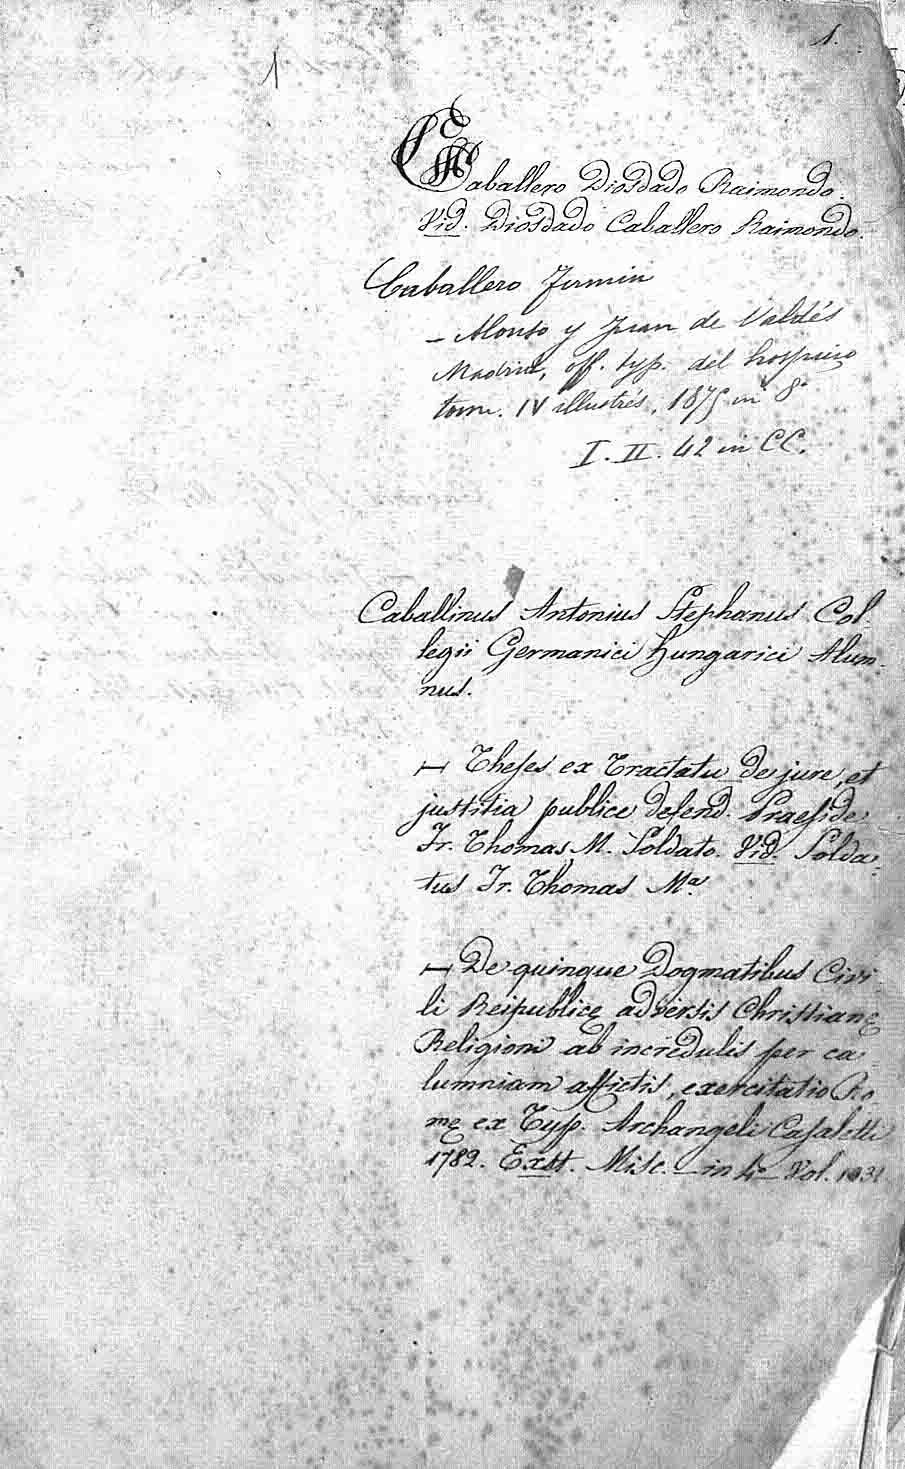 1
1.
Caballero Diosdado Raimondo.
Vid. Diosdado Caballero Raimondo.
Caballero Firmin
- Alonso y Juan de Valdés
Madrid, off. typ. del hospicio
tom. IV illustrés, 1875 in 8°
I. II. 42 in CC.
Caballinus Antonius Stephanus Col-
legii Germanici Hungarici Alum-
nus.
— Theses ex Tractatu de jure, et
justitia publice defend. Praeside
Fr. Thomas M. Soldato. Vid. Solda-
tus Fr. Thomas Ma
— De quinque Dogmatibus Civi-
li Reipublicę adversis Christianę
Religioni ab incredulis per ca-
lumniam affictis, exercitatio Ro-
mę ex Typ. Archangeli Casaletti
1782. Exst. Misc. in 4° Vol. 1031